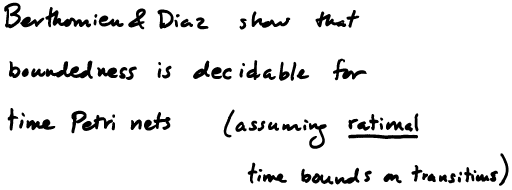 Berthomieu & Diaz show that
boundedness is decidable for
time Petri nets (assuming rational
time bounds on transitions)